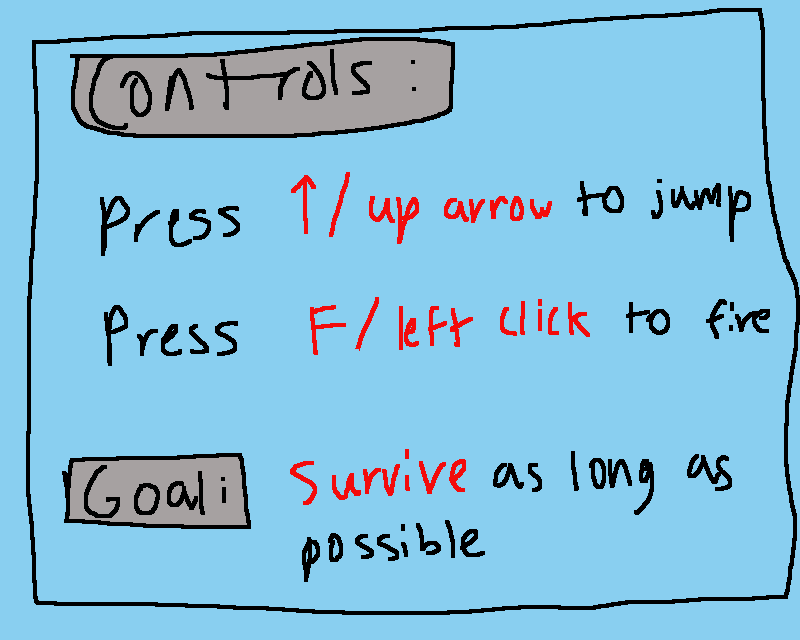 Controls:
Press ↑/ up arrow to jump
Press F/left click to fire
Goal: Survive as long as
possible